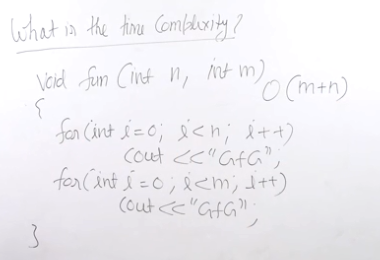 What is the time Complexity?
void fun (int n, int m)
O(m+n)
{
for(int i=0; i<n; i++)
cout <<"GfG";
for(int i=0; i<m; i++)
cout <<"GfG";
}